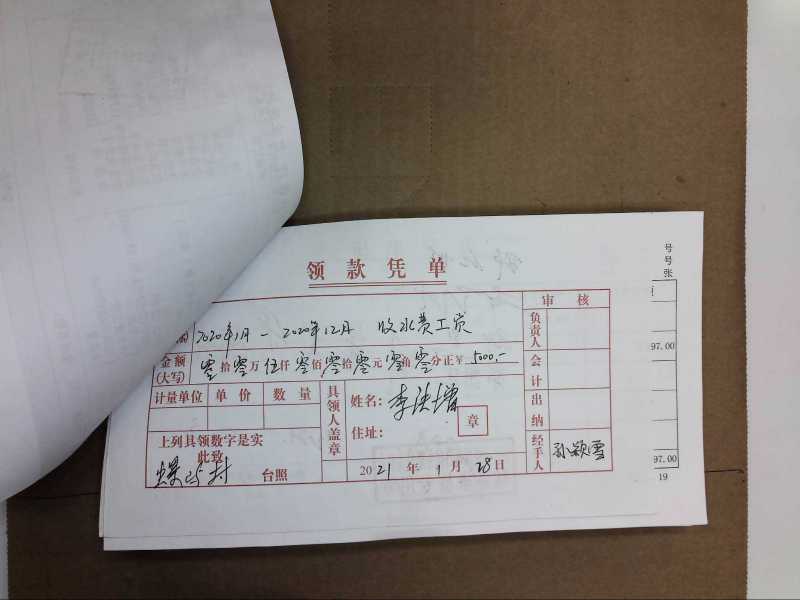 领款凭单
2020年1月-2020年12月 收水费工资
金额(大写) 零拾零万伍仟零佰零拾零元零角零分正¥5000,-
计量单位 单价 数量
上列具领数字是实
此致
村 台照
具领人盖章
姓名:李洪增
住址:
章
2021年1月28日
审核
负责人
会计
出纳
经手人 孙颖雪
号
号
张
97.00
97.00
19